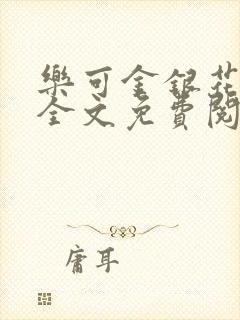 樂可金銀花
全文免費閱
庸耳